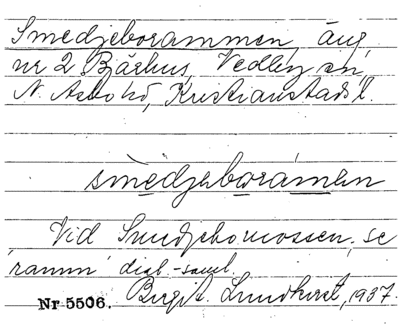 Smedjeborammen, äng,
nr 2 Bjärhus, Vedby sn,
N. Asbo hd, Kristianstads l.
smedjeboramen
Vid Smedjebomossen, se
'ramm' dial.-saml.
Nr 5506. Birgit Lundkvist, 1937.